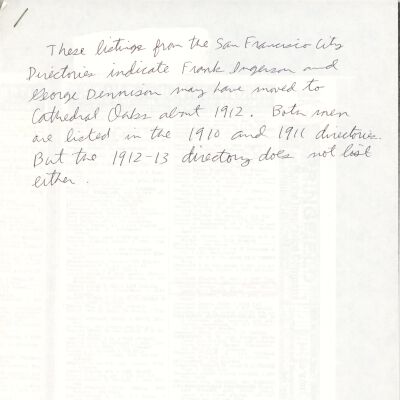 These listings from the San Francisco City
Directories indicate Frank Ingerson and
George Dennison may have moved to
Cathedral Oaks about 1912. Both men
are listed in the 1910 and 1911 directories.
But the 1912-13 directory does not list
either.